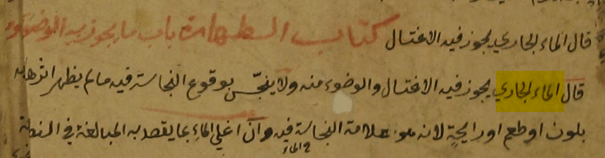 قال الماء الجاري يجوز فيه الاغتسال كتاب الطهارة باب ما يجوز به الوضوء
قال الماء الجاري يجوز فيه الاغتسال والوضوء منه ولا ينجس بوقوع النجاسة فيه مالم يظهر اثرها
بلون او طعم او رايحة لانه علامة النجاسة فيه وان اغلي الماء بما يقصد به المبالغة في النظافة